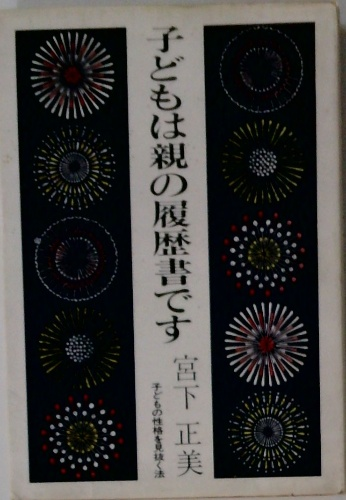 子どもは親の履歴書です
宮下正美
子どもの性格を見抜く法